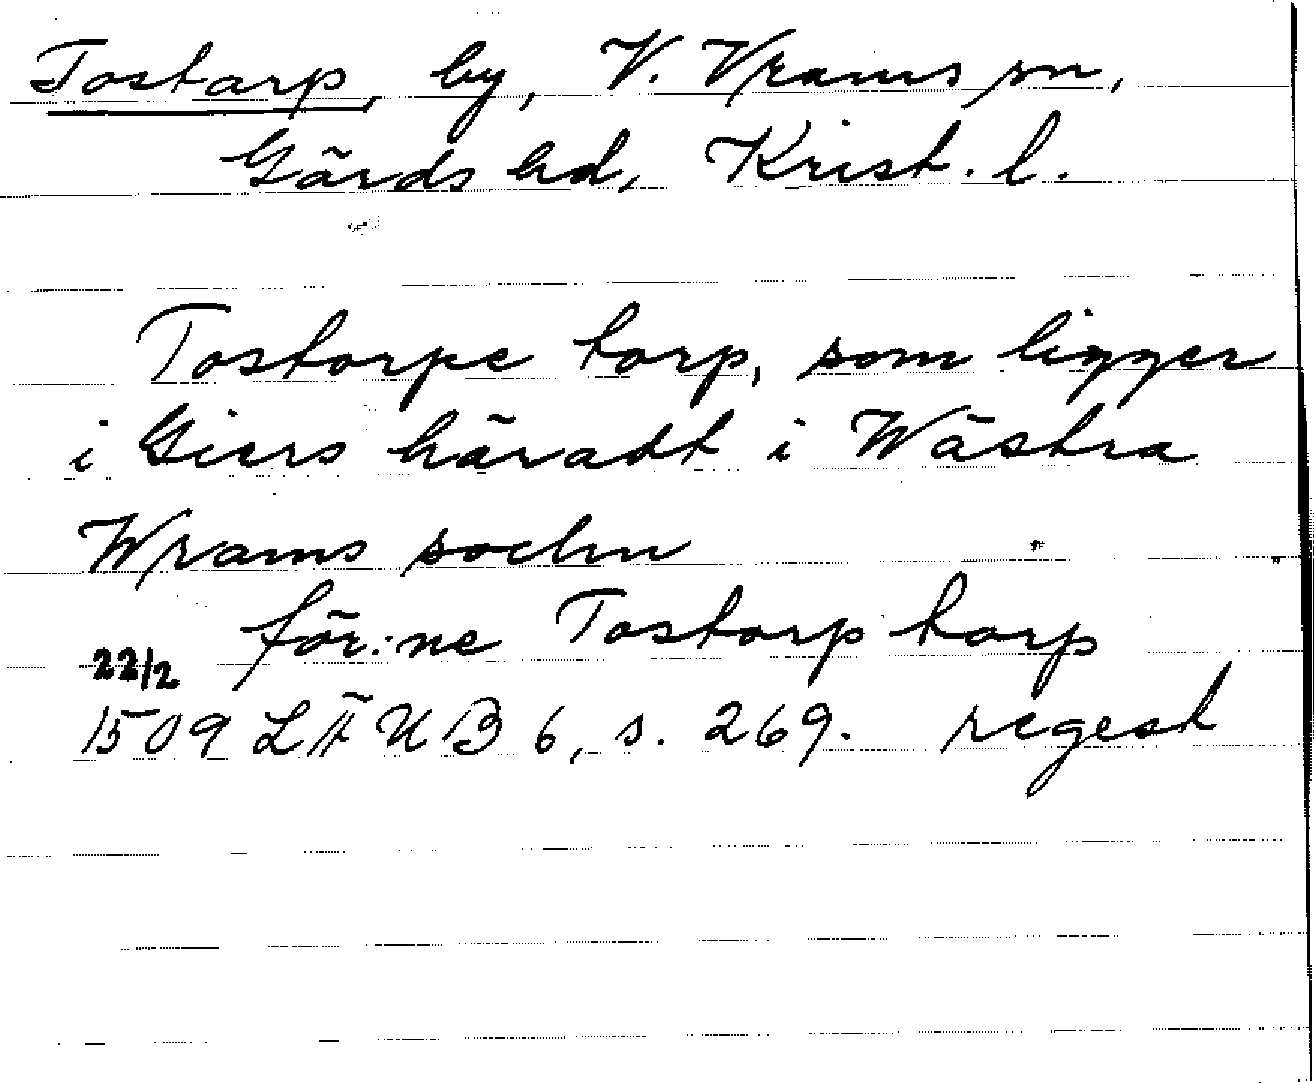 Tostarp, by, V. Vrams sn,
Gärds hd, Krist. l.
Tostorpe torp, som ligger
i Giers häradt i Wästra
Wrams sochn
för:ne Tostorp torp
22/2
1509 LÄUB 6, s. 269. regest